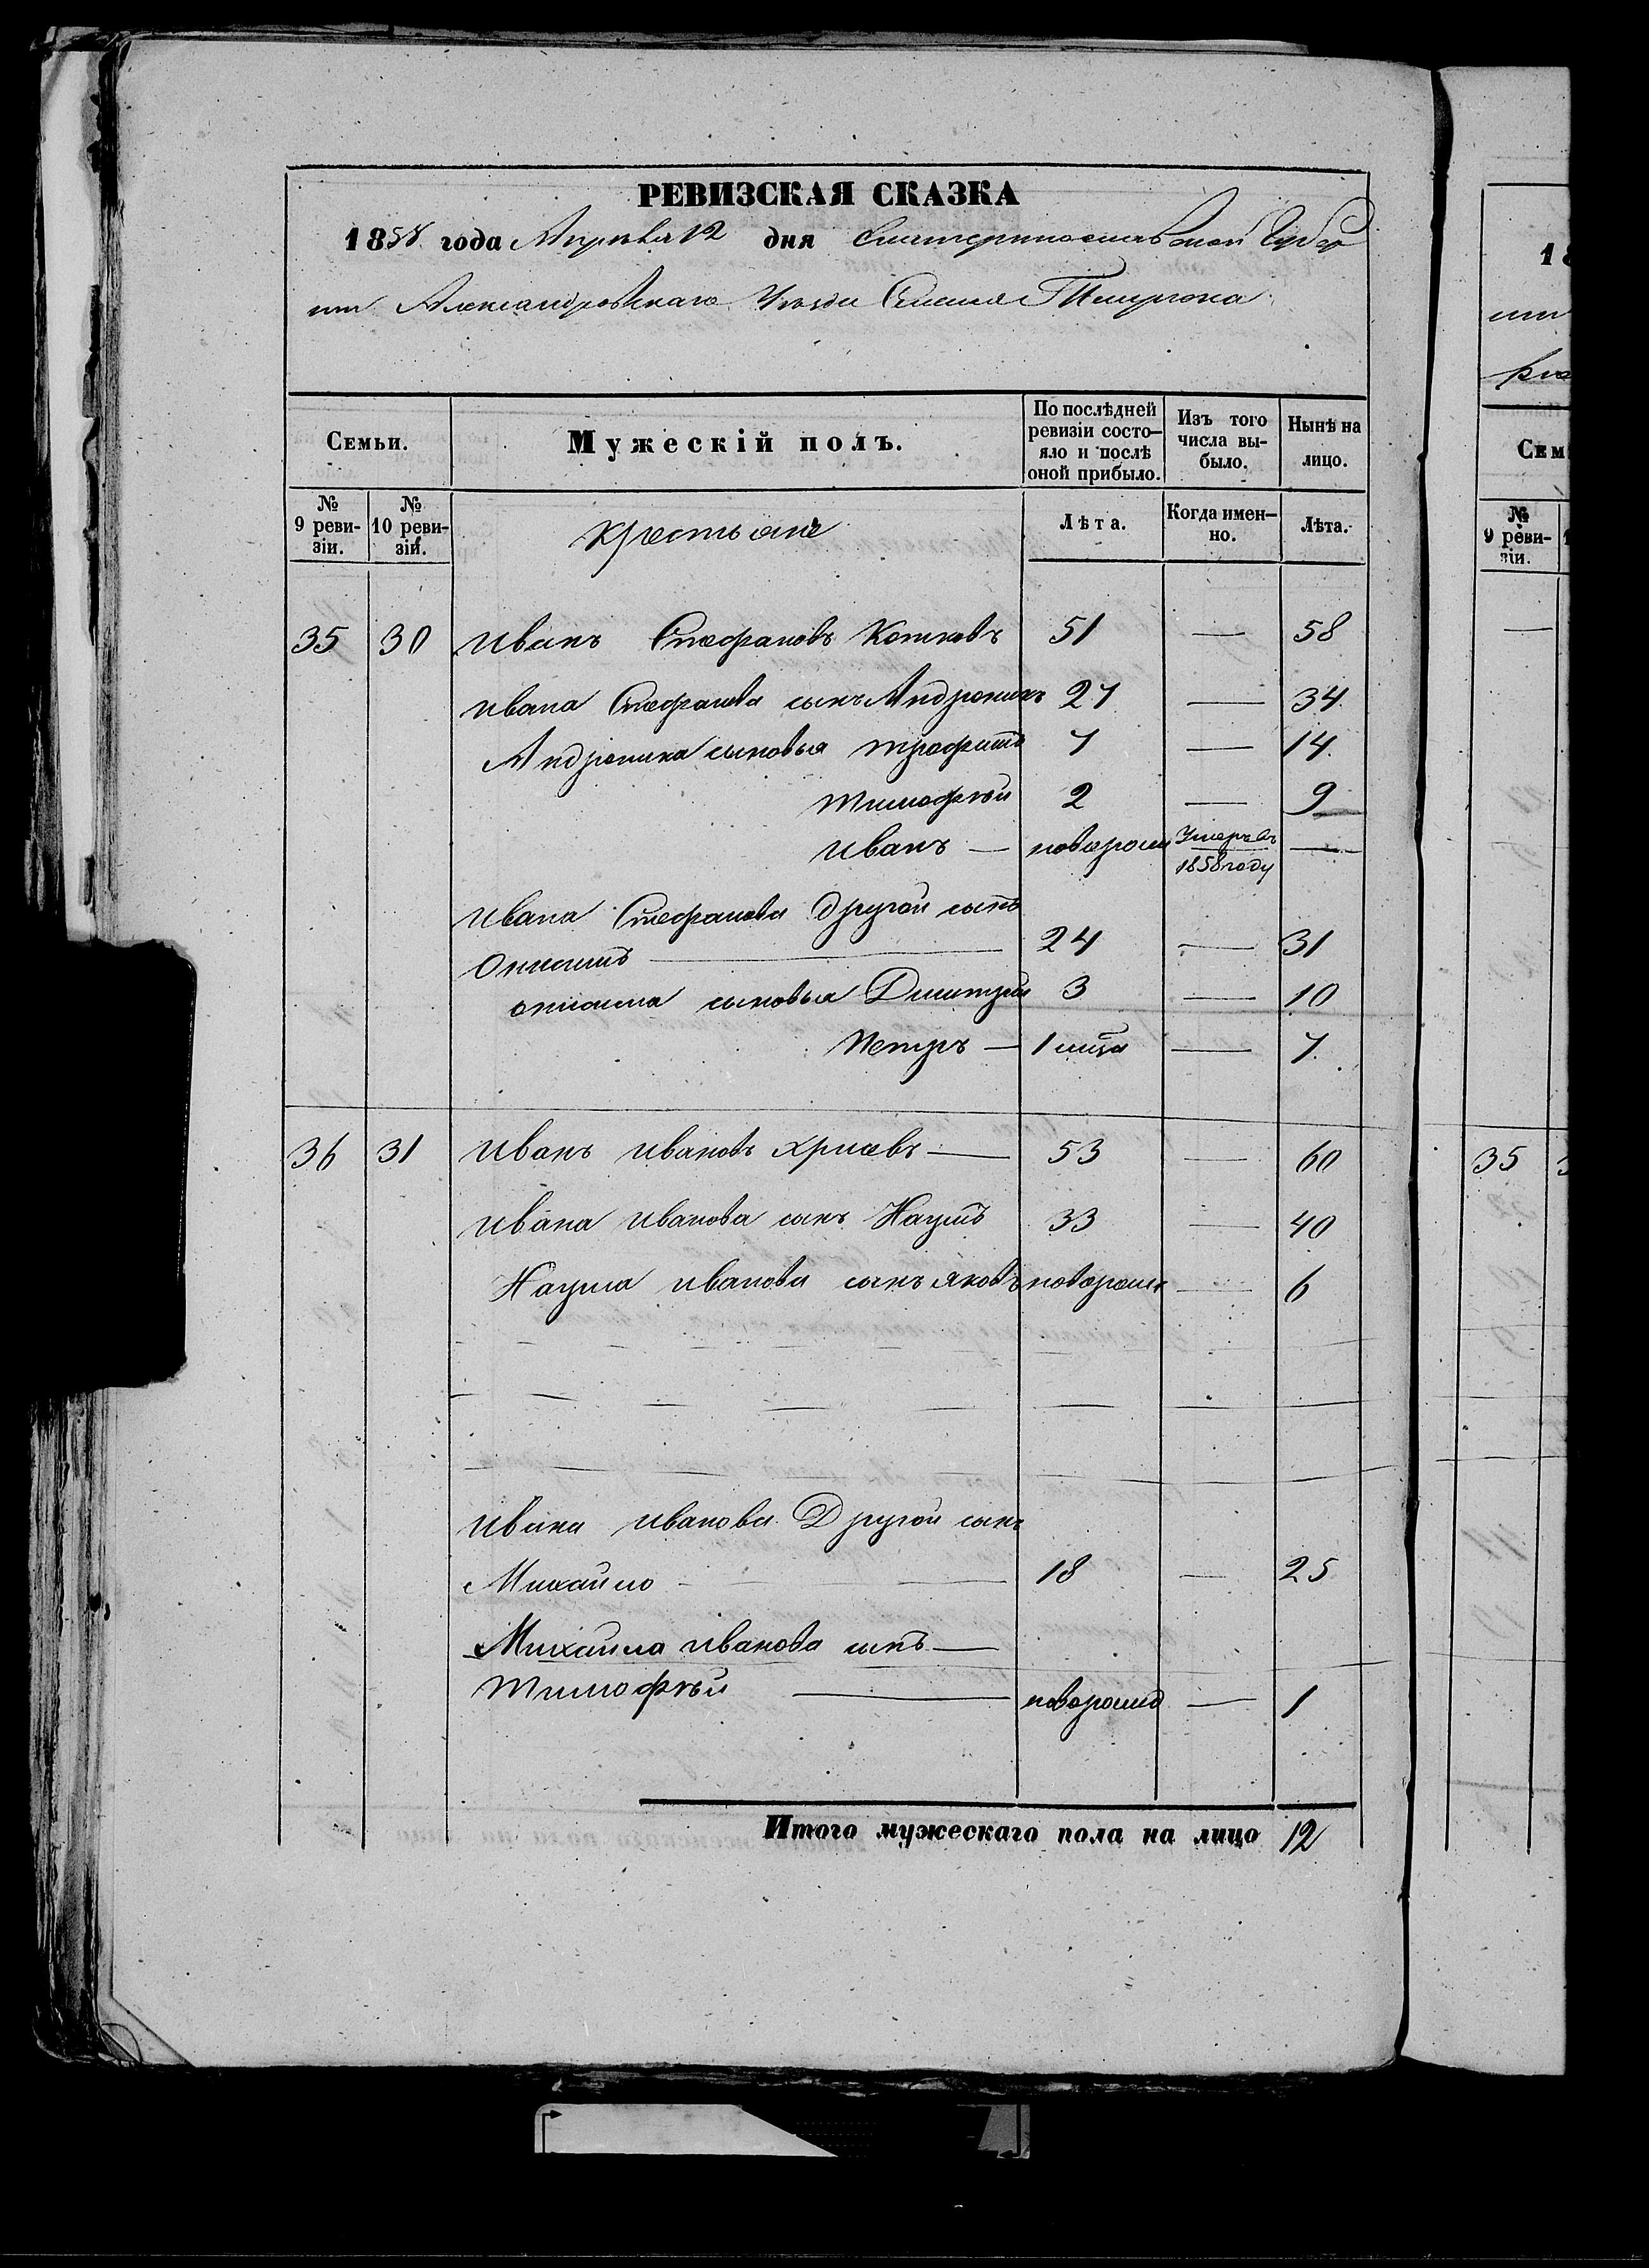 РЕВИЗСКАЯ СКАЗКА
1858 года Апреля 12 дня Екатеринославской Губер
нии Александровскаго Уезда Селенія Темрюка
Семьи. Мужескій полъ. По послѣдней ревизіи состо-яло и послѣ оной прибыло. Изъ того числа вы-было. Нынѣ на лицо.
№ 9 реви-зіи. № 10 реви-зіи. Крестьяне Лѣта. Когда имен-но. Лѣта.
35 30 Иванъ Стефановъ Котковъ 51 — 58
Ивана Стефанова сынъ Андроникъ 27 — 34
Андроника сыновья Трофимъ 7 — 14
Тимофѣй 2 — 9
Иванъ — новорожд Умеръ въ 1858 году —
Ивана Стефанова другой сынъ
Онисимъ — 24 — 31
Онисима сыновья Дмитрій 3 — 10
Петръ — 1 — 7
36 31 Иванъ Ивановъ — 53 — 60
Ивана Иванова сынъ Наумъ 33 — 40
Наума Иванова сынъ Яковъ новорожд — 6
Ивана Иванова Другой сынъ
Михайло — 18 — 25
Михайла Иванова сынъ —
Тимофѣй — новорожд — 1
Итого мужескаго пола на лицо 12
18
нии
Сем
№ 9 реви-зіи.
35